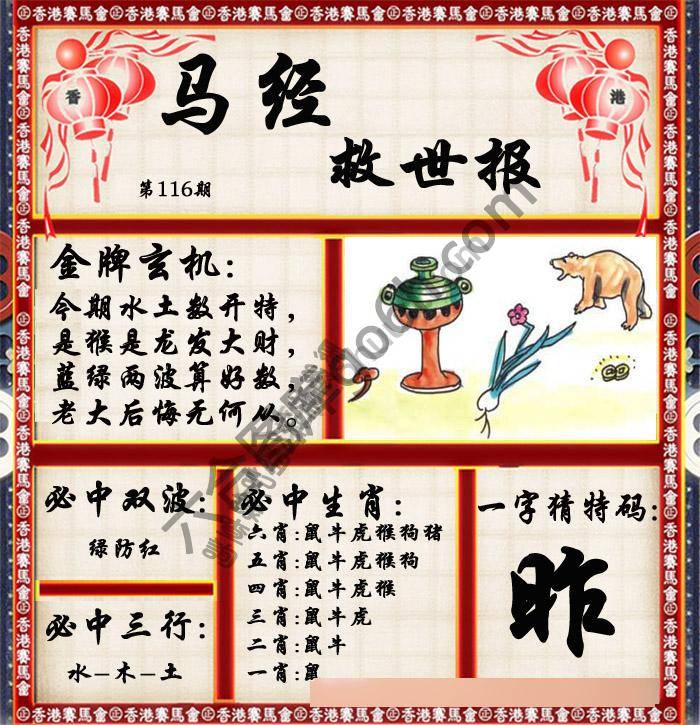 香港賽馬會
香
港
马经
救世报
第116期
金牌玄机:
今期水土数开特，
是猴是龙发大财，
蓝绿两波算好数，
老大后悔无何从。
必中双波:
绿防红
必中三行:
水—木—土
必中生肖:
六肖:鼠牛虎猴狗猪
五肖:鼠牛虎猴狗
四肖:鼠牛虎猴
三肖:鼠牛虎
二肖:鼠牛
一肖:鼠
一字猜特码:
昨